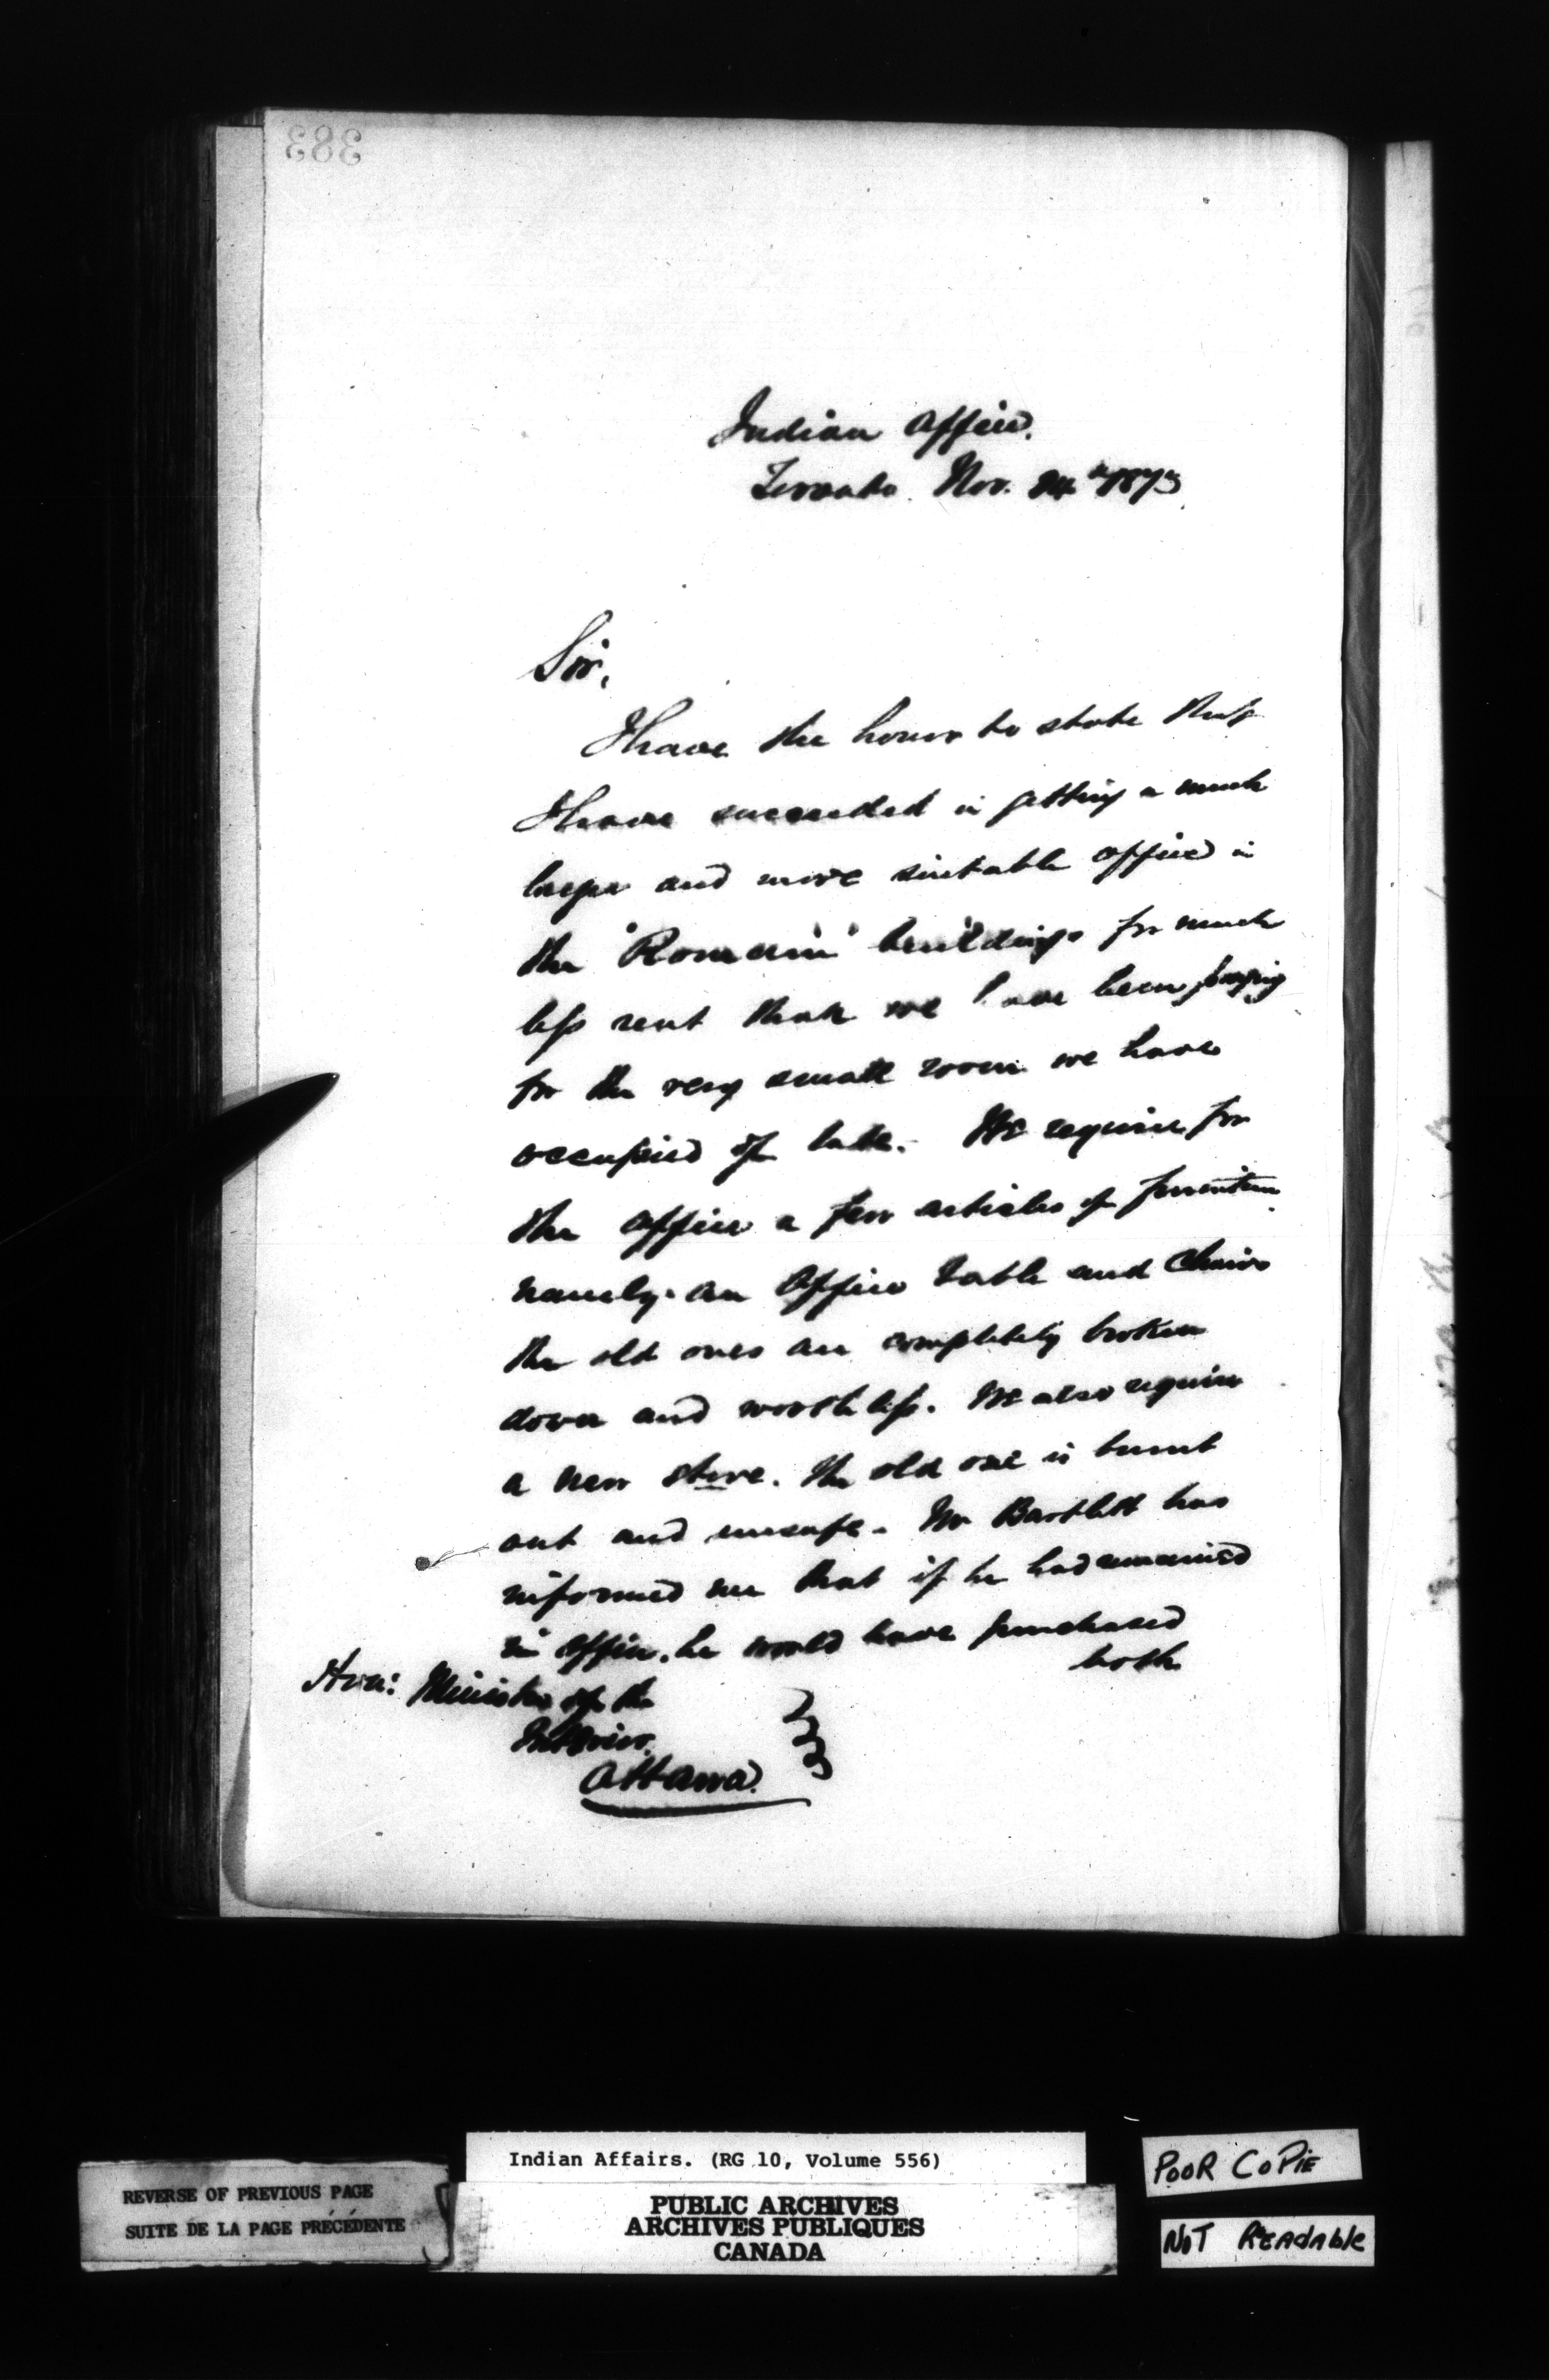 383
Indian Office.
Toronto Nov. 24th 1873
Sir,
I have the honor to state that
I have succeeded in getting a much
larger and more suitable office in
the "Romain" buildings for much
less rent than we have been paying
for the very small room we have
occupied of late. We require for
the office a few articles of furniture
namely. an Office table and chairs
the old ones are completely broken
down and worthless. We also require
a new stove. The old one is burnt
out and unsafe. Mr Bartlett has
informed me that if he had remained
in office, he would have purchased
both
Hon: Minister of the
Interior.
Ottawa.
Indian Affairs. (RG 10, Volume 556)
REVERSE OF PREVIOUS PAGE
SUITE DE LA PAGE PRÉCÉDENTE
PUBLIC ARCHIVES
ARCHIVES PUBLIQUES
CANADA
POOR COPIE
NOT READABLE